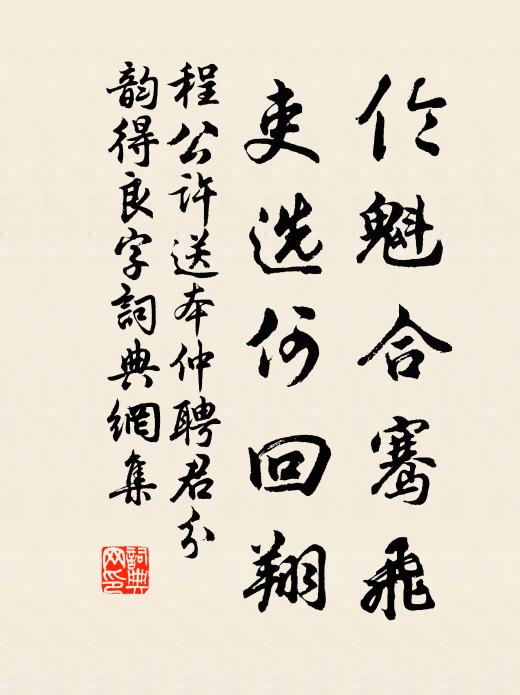 伦魁合騫飛
吏选何回翔
程公许送本仲聘君分
韵得良字詞典網集
詞典网印